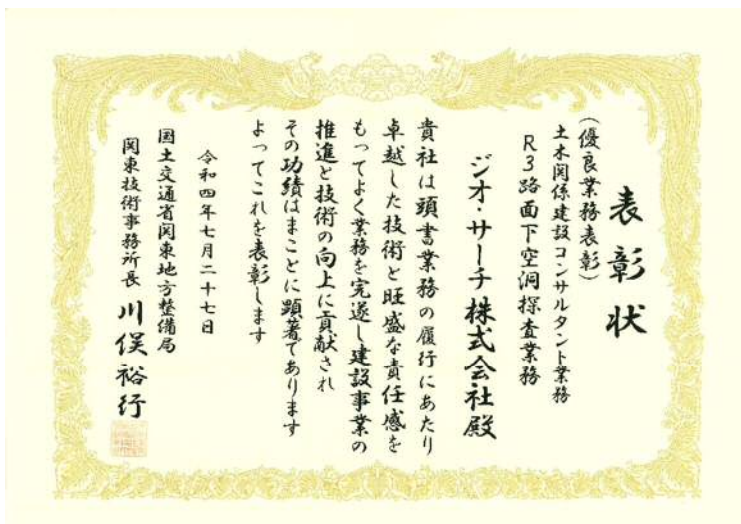 表彰状
(優良業務表彰)
土木関係建設コンサルタント業務
R3路面下空洞探査業務
ジオ・サーチ株式会社殿
貴社は頭書業務の履行にあたり
卓越した技術と旺盛な責任感を
もってよく業務を完遂し建設事業の
推進と技術の向上に貢献され
その功績はまことに顕著であります
よってこれを表彰します
令和四年七月二十七日
国土交通省関東地方整備局
関東技術事務所長 川俣裕行